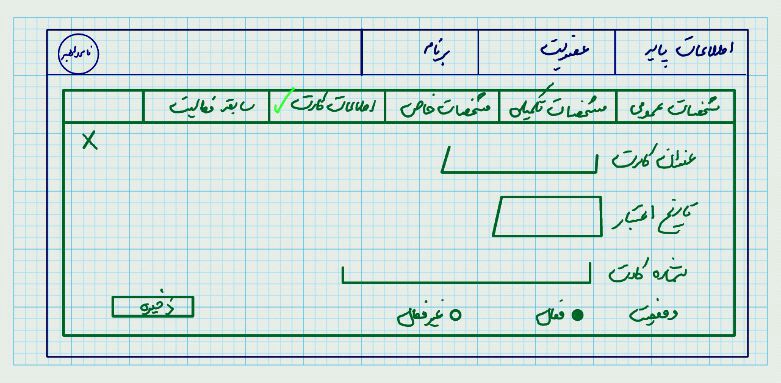 اطلاعات پایه عضویت برنامه نام کاربر
مشخصات عمومی مشخصات تکمیلی مشخصات خاص اطلاعات کارت ✓ سابقه فعالیت
X
عنوان کارت
تاریخ اعتبار
شماره کارت
وضعیت فعال غیرفعال ذخیره